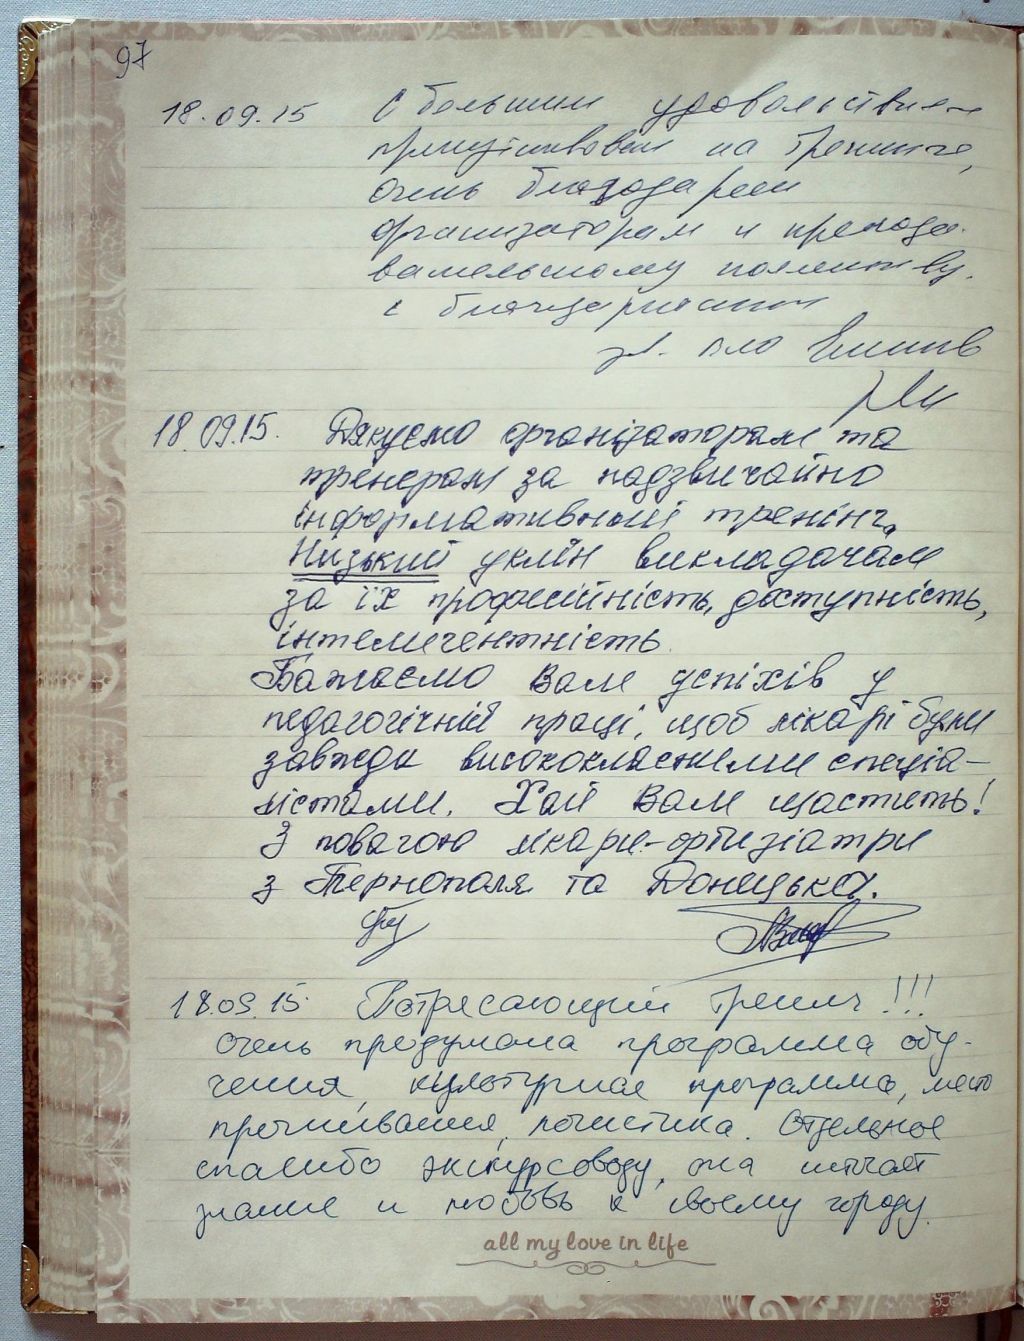 97
18.09.15 С большим удовольствием
присутствовал на тренинге,
очень благодарен
организаторам и препода-
вательскому коллективу.
С благодарностью

18.09.15. Дякуємо організаторам та
тренерам за надзвичайно
інформативний тренінг.
Низький уклін викладачам
за їх професійність, доступність,
інтелигентність.
Бажаємо Вам успіхів у
педагогічній праці, щоб лікарі були
завжди висококласними спеціа-
лістами. Хай Вам щастить!
З повагою лікарі-фтизіатри
з Тернополя та Донецька.
18.09.15. Потрясающий тренинг!!!
Очень продумана программа обу-
чения, культурная программа, место
проживания, логистика. Отдельное
спасибо экскурсоводу, она излучает
знание и любовь к своему городу.
all my love in life